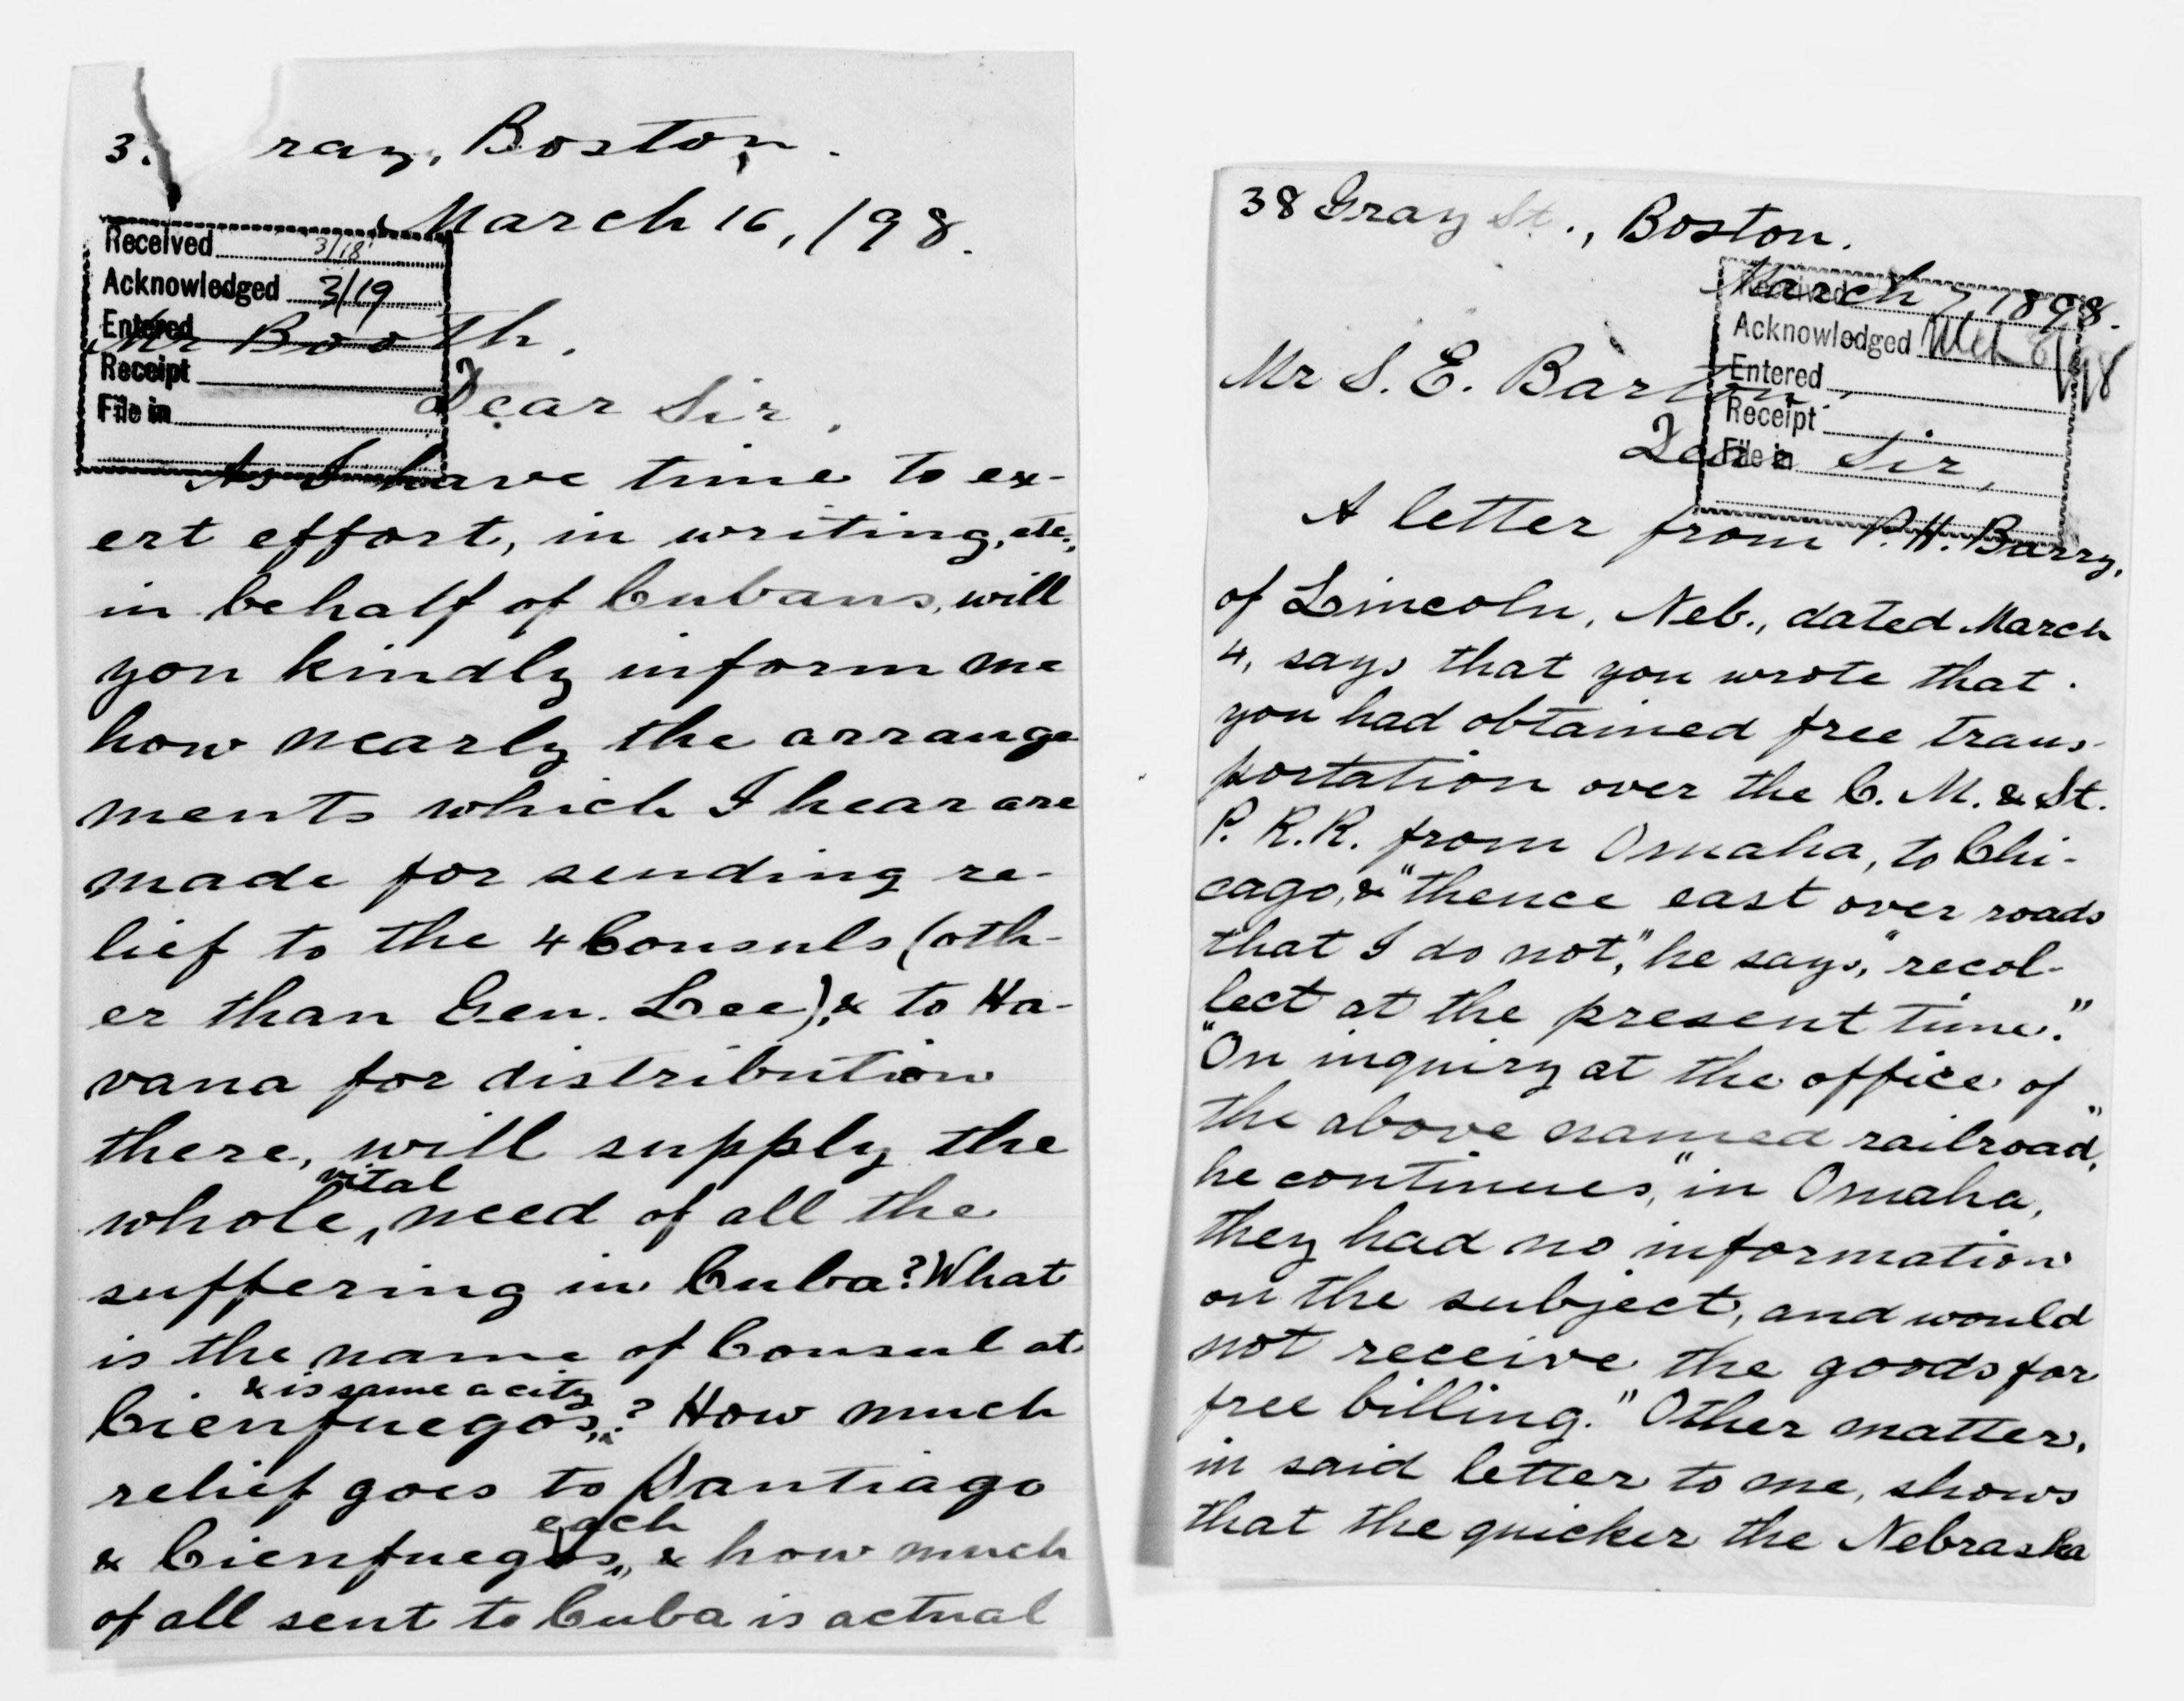 3. ray, Boston.
March 16, 198.
Received 3/18
Acknowledged 3/19
Entered
Receipt
File in
Mr Booth.
Dear Sir,
As I have time to ex-
ert effort, in writing, etc.,
in behalf of Cubans, will
you kindly inform me
how nearly the arrange
ments which I hear are
made for sending re-
lief to the 4 Consuls (oth-
er than Gen. Lee), & to Ha-
vana for distribution
there, will supply the
vital
whole ‸ need of all the
suffering in Cuba? What
is the name of Consul at
& is same a city
Cienfuegos, ‸? How much
relief goes to Santiago
each
& Cienfuegos, ‸ & how much
of all sent to Cuba is actual
38 Gray St., Boston.
March 7, 1898.
Received
Acknowledged Mch 8/98
Entered
Receipt
File in
Mr S. E. Barton.
Dear Sir,
A letter from P. H. Barry,
of Lincoln, Neb., dated March
4, says that you wrote that
you had obtained free trans-
portation over the C. M. & St.
P. R.R. from Omaha, to Chi-
cago, & "thence east over roads
that I do not," he says, "recol-
lect at the present time."
"On inquiry at the office of
the above named railroad,"
he continues, "in Omaha,
they had no information
on the subject, and would
not receive the goods for
free billing." Other matter,
in said letter to me, shows
that the quicker the Nebraska